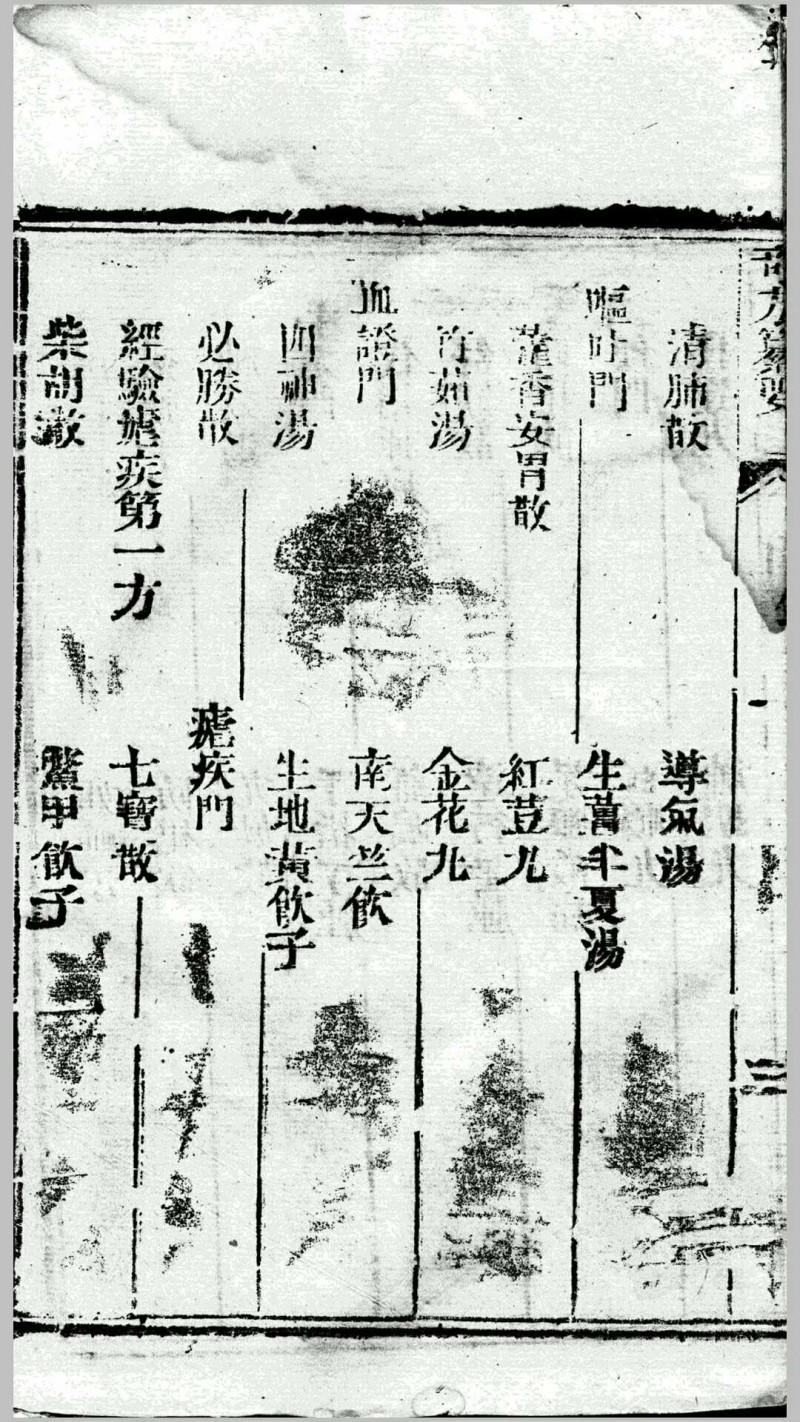 奇方纂要
清肺散
導氣湯
嘔吐門
生薑半夏湯
藿香安胃散
紅荳丸
竹茹湯
金花丸
血證門
南天竺飲
四神湯
生地黃飲子
必勝散
瘧疾門
經驗瘧疾第一方
七寶散
柴胡散
鱉甲飲子